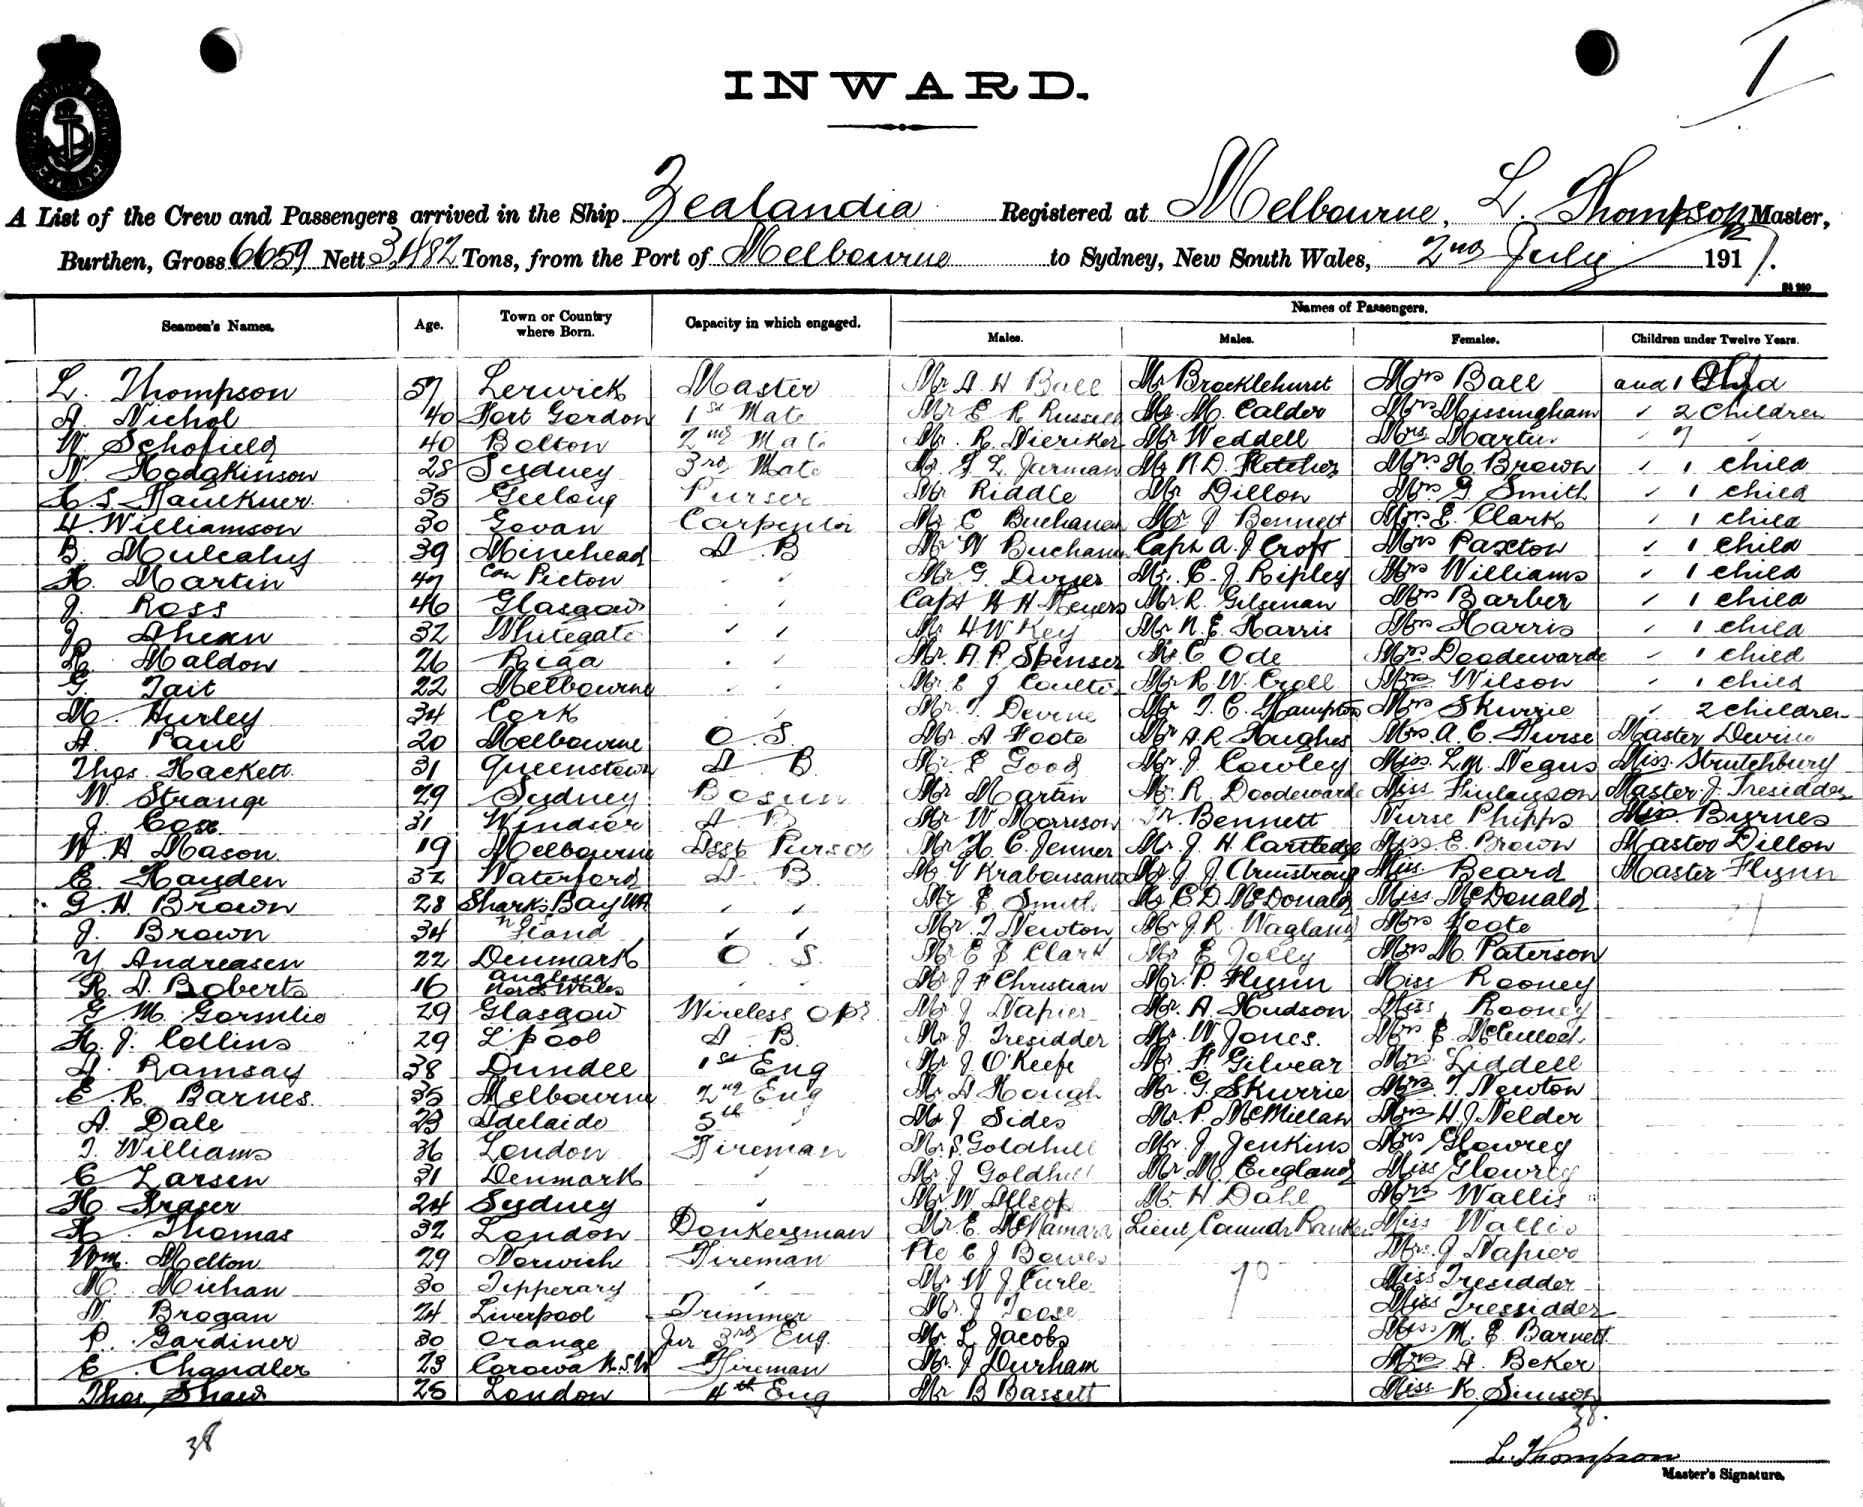 INWARD.
I
A List of the Crew and Passengers arrived in the Ship Zealandia Registered at Melbourne, L. Thompson Master,
Burthen, Gross 6659 Nett 3,482 Tons, from the Port of Melbourne to Sydney, New South Wales, 2nd July 1917.
Names of Passengers.
Seamen's Names. Age. Town or Country where Born. Capacity in which engaged. Males. Males. Females. Children under Twelve Years.
L. Thompson 57 Lerwick Master Mr A H Ball Mr Brocklehurst Mrs Ball and 1 Child
A. Nichol 40 Fort Gordon 1st Mate Mr E R Russell Mr M. Calder Mrs Missingham " 2 Children
W. Schofield 40 Bolton 2nd Mate Mr. R. Nieriker Mr Weddell Mrs Martin
N. Hodgkinson 28 Sydney 3rd Mate Mr J L Jarman Mr N D. Fletcher Mrs H. Brown " 1 child
H S Faulkner 35 Geelong Purser Mr Riddle Mr Dillon Mrs G Smith " 1 child
H. Williamson 30 Govan Carpenter Mr C Buchanan Mr J Bennett Mrs E. Clark " 1 child
B. Mulcahy 39 Minehead A. B Mr W Buchanan Capt A. J Croft Mrs Paxton " 1 child
H. Martin 47 Picton " " Mr G. Mr. C. J. Ripley Mrs Williams " 1 child
J. Ross 46 Glasgow " " Capt H H Meyers Mr. R. Gilsenan Mrs Barber " 1 child
J. Ahern 32 Whitegate " " Mr H W Key Mr N. E. Harris Mrs Harris " 1 child
R. Maldon 26 Riga " " Mr. A. P. Spenser Mr C Ode Mrs Doodewarde " 1 child
G. Tait 22 Melbourne " " Mr. E J. Coulter Mr R. W. Croll Mrs Wilson " 1 child
M. Hurley 34 Cork " " Mr. J. Devine Mr T. C. Hampton Mrs Skurrie " 2 children
A. Paul 20 Melbourne O. S. Mr. A Foote Mr A. R. Hughes Mrs. A. C. Furse Master Devine
Thos. Hackett 31 Queenstown A. B. Mr. E Good Mr. J. Cowley Miss. L. M. Negus Miss. Strutchbury
W. Strange 29 Sydney Bosun Mr Martin Mr. R. Doodewarde Miss Finlayson Master J. Tresidder
J. Cox 31 Windsor A. B. Mr W Morrison Dr. Bennett Nurse Phipps Miss. Byrnes
W. A Mason 19 Melbourne Asst Purser Mr H. C. Jenner Mr. J. H. Cartledge Miss E. Brown Master Dillon
E. Hayden 32 Waterford A. B. Mr J. J. Armstrong Miss Beard Master Flynn
G. H. Brown 28 Sharks Bay WA " " Mr E Smith Mr C D McDonald Miss McDonald
J. Brown 34 " " Mr. T Newton Mr. J. R. Wagland Mrs Foote
Y Andreasen 22 Denmark O. S. Mr E J Clark Mr E Jolly Mrs M. Paterson
R. A. Roberts 16 Anglesea North Wales " " Mr J F Christian Mr. P. Flynn Miss Rooney
G M. Gormlie 29 Glasgow Wireless Opr Mr. J Napier Mr. A. Hudson Miss Rooney
H. J. Collins 29 L'pool A. B. Mr. J Tresidder Mr. W Jones. Mrs E. McCulloch
A. Ramsay 38 Dundee 1st Eng Mr J O'Keefe Mr. F Gilvear Mrs Liddell
E. R. Barnes 35 Melbourne 2nd Eng Mr. A Hough Mr. G. Skurrie Mrs. T. Newton
A. Dale 23 Adelaide 5th " Mr J Sides Mr. P. McMillan Mrs H. J. Nelder
T. Williams 36 London Fireman Mr. S. Goldhill Mr. J. Jenkins Mrs Glowrey
C Larsen 31 Denmark " Mr. J Goldhill Mr M. England Miss Glowrey
H. Fraser 24 Sydney " Mr. W Allsop Mr. H Dahl Mrs Wallis
H. Thomas 32 London Donkeyman Mr E. McNamara Lieut Comndr Ranken Miss Wallis
Wm. Melton 29 Norwich Fireman Pte C J Bowes Mrs. J Napier
M. Michan 30 Tipperary " Mr W J Curle 70 Miss Tresidder
N. Brogan 24 Liverpool Trimmer Mr. J Toose Miss Tressidder
P. Gardiner 30 Orange Jnr 3rd Eng. Mr. L Jacobs Miss M. E Barnett
E. Chandler 23 Corowa N.S.W Fireman Mr. J Durham Mrs A. Beker
Thos. Shaw 25 London 4th Eng Mr B Bassett Miss K. Simson
38 38.
L. Thompson
Master's Signature.